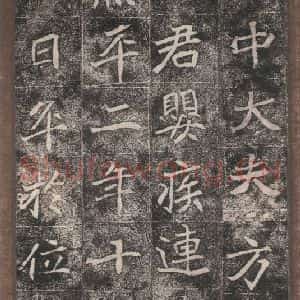 中大夫方
君嬰疾連
平二年十
日卒於位